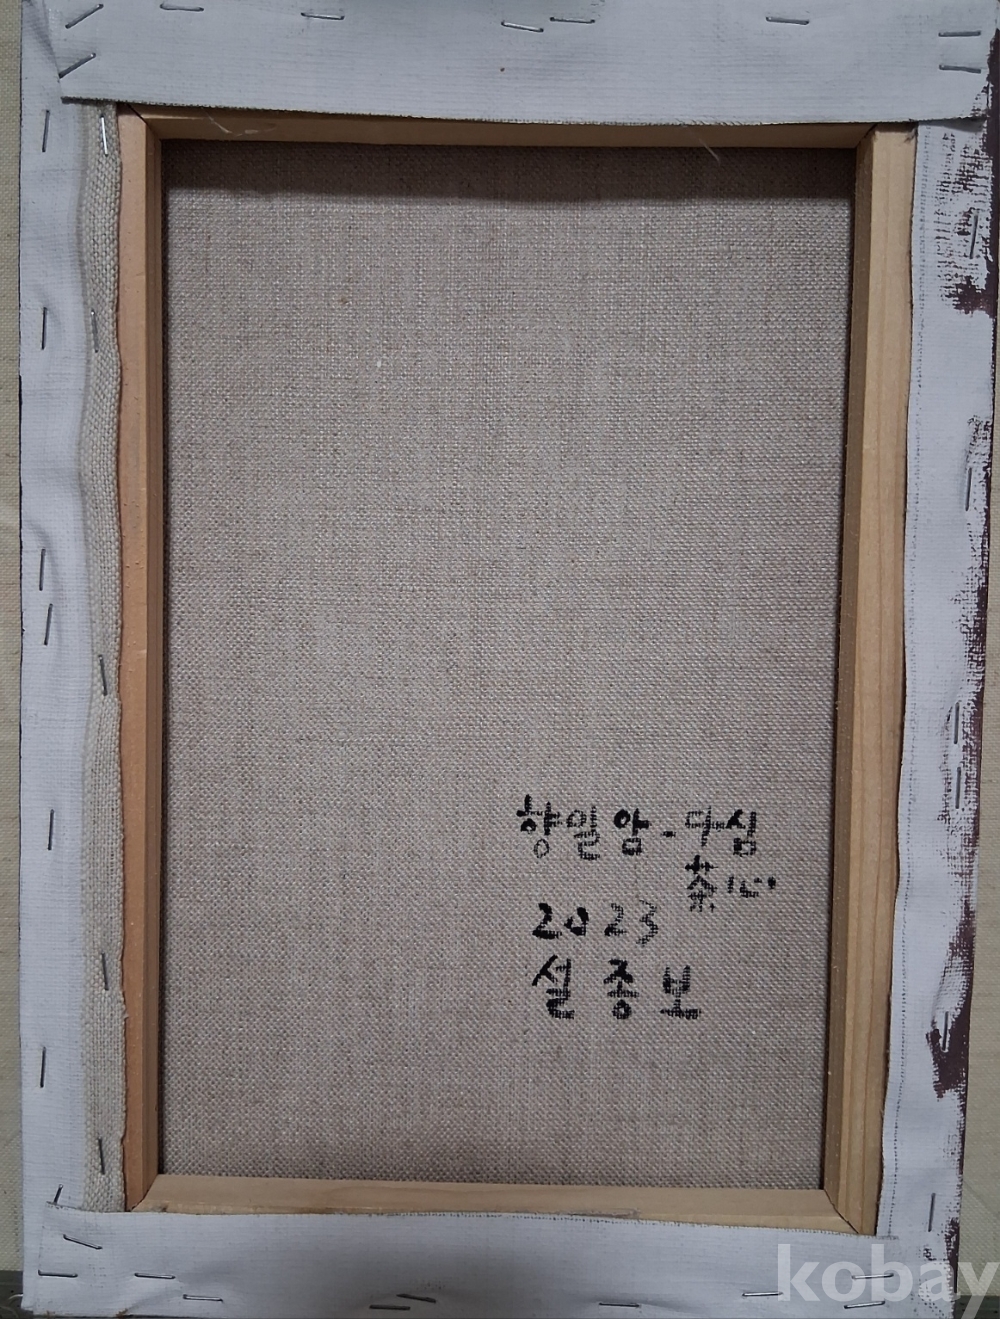 향일암-다심
茶心
2023
설종보
kobay